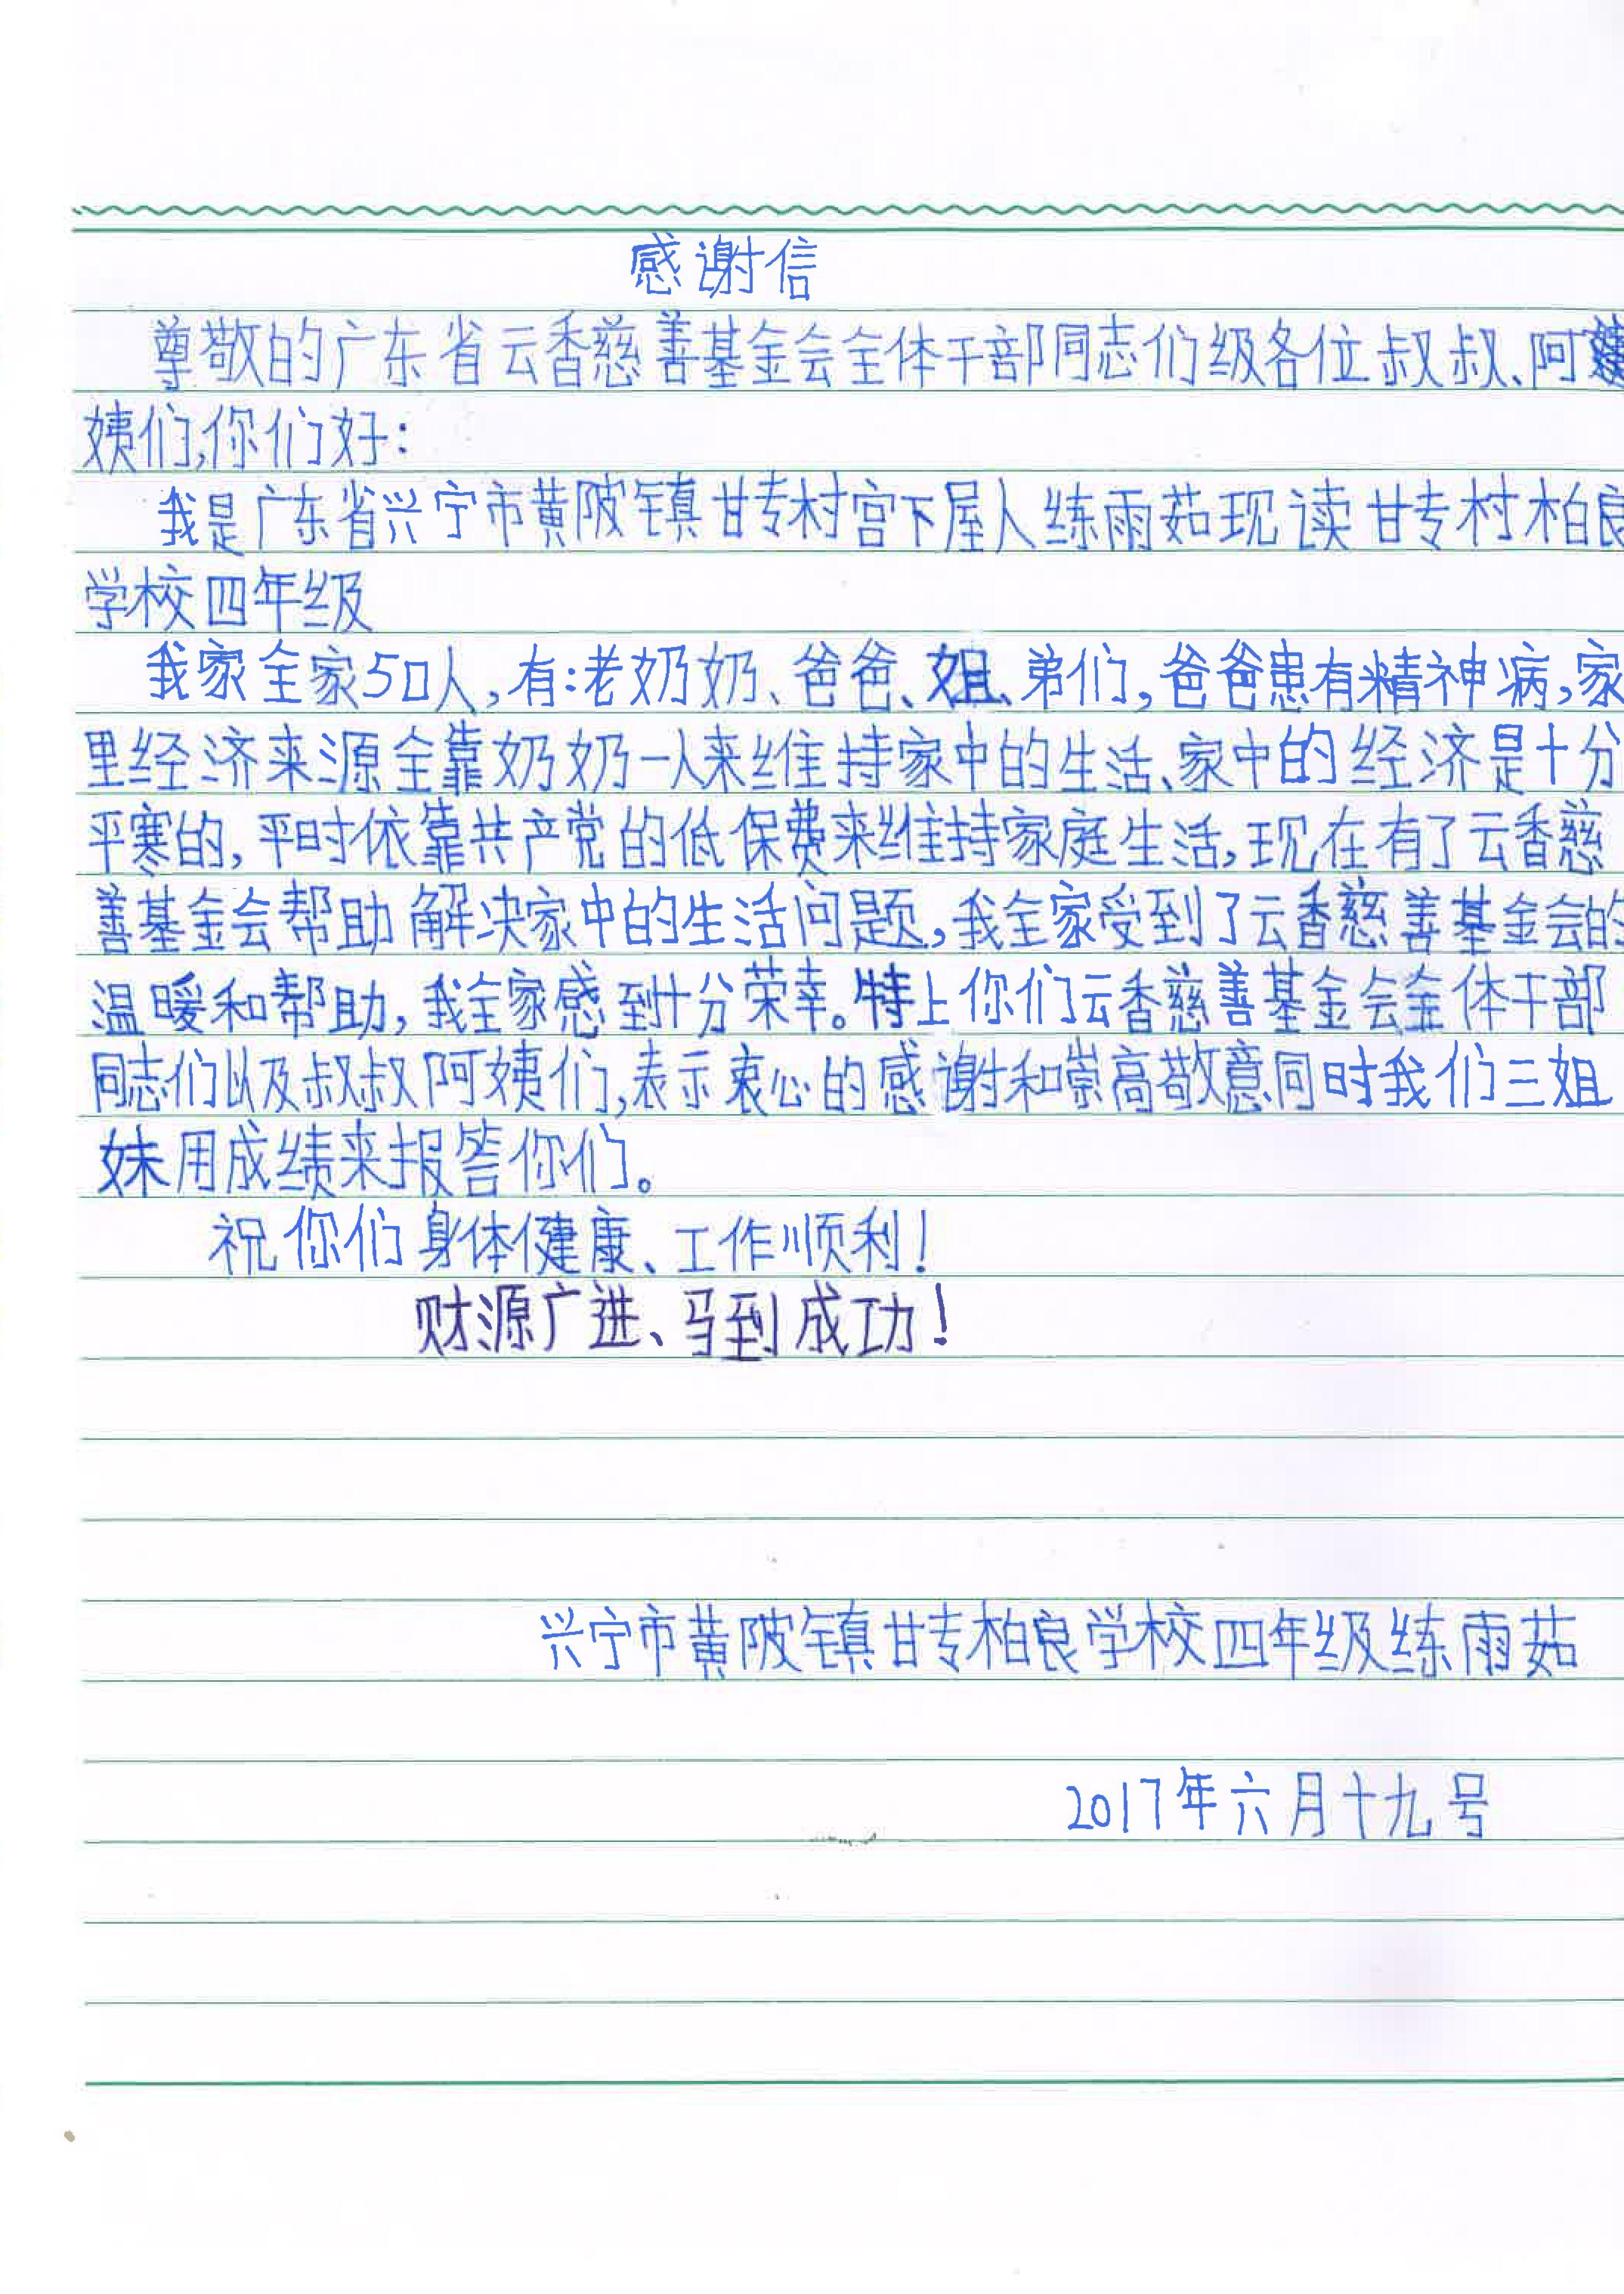 感谢信
尊敬的广东省云香慈善基金会全体干部同志们级各位叔叔、阿
姨们,你们好:
我是广东省兴宁市黄陂镇甘专村宫下屋人练雨茹现读甘专村柏良
学校四年级
我家全家5口人,有:老奶奶、爸爸、姐、弟们,爸爸患有精神病,家
里经济来源全靠奶奶一人来维持家中的生活、家中的经济是十分
平寒的,平时依靠共产党的低保费来维持家庭生活,现在有了云香慈
善基金会帮助解决家中的生活问题,我全家受到了云香慈善基金会的
温暖和帮助,我全家感到十分荣幸。特上你们云香慈善基金会全体干部
同志们以及叔叔阿姨们,表示衷心的感谢和崇高敬意同时我们三姐
妹用成绩来报答你们。
祝你们身体健康、工作顺利!
财源广进、马到成功!
兴宁市黄陂镇甘专柏良学校四年级练雨茹
2017年六月十九号